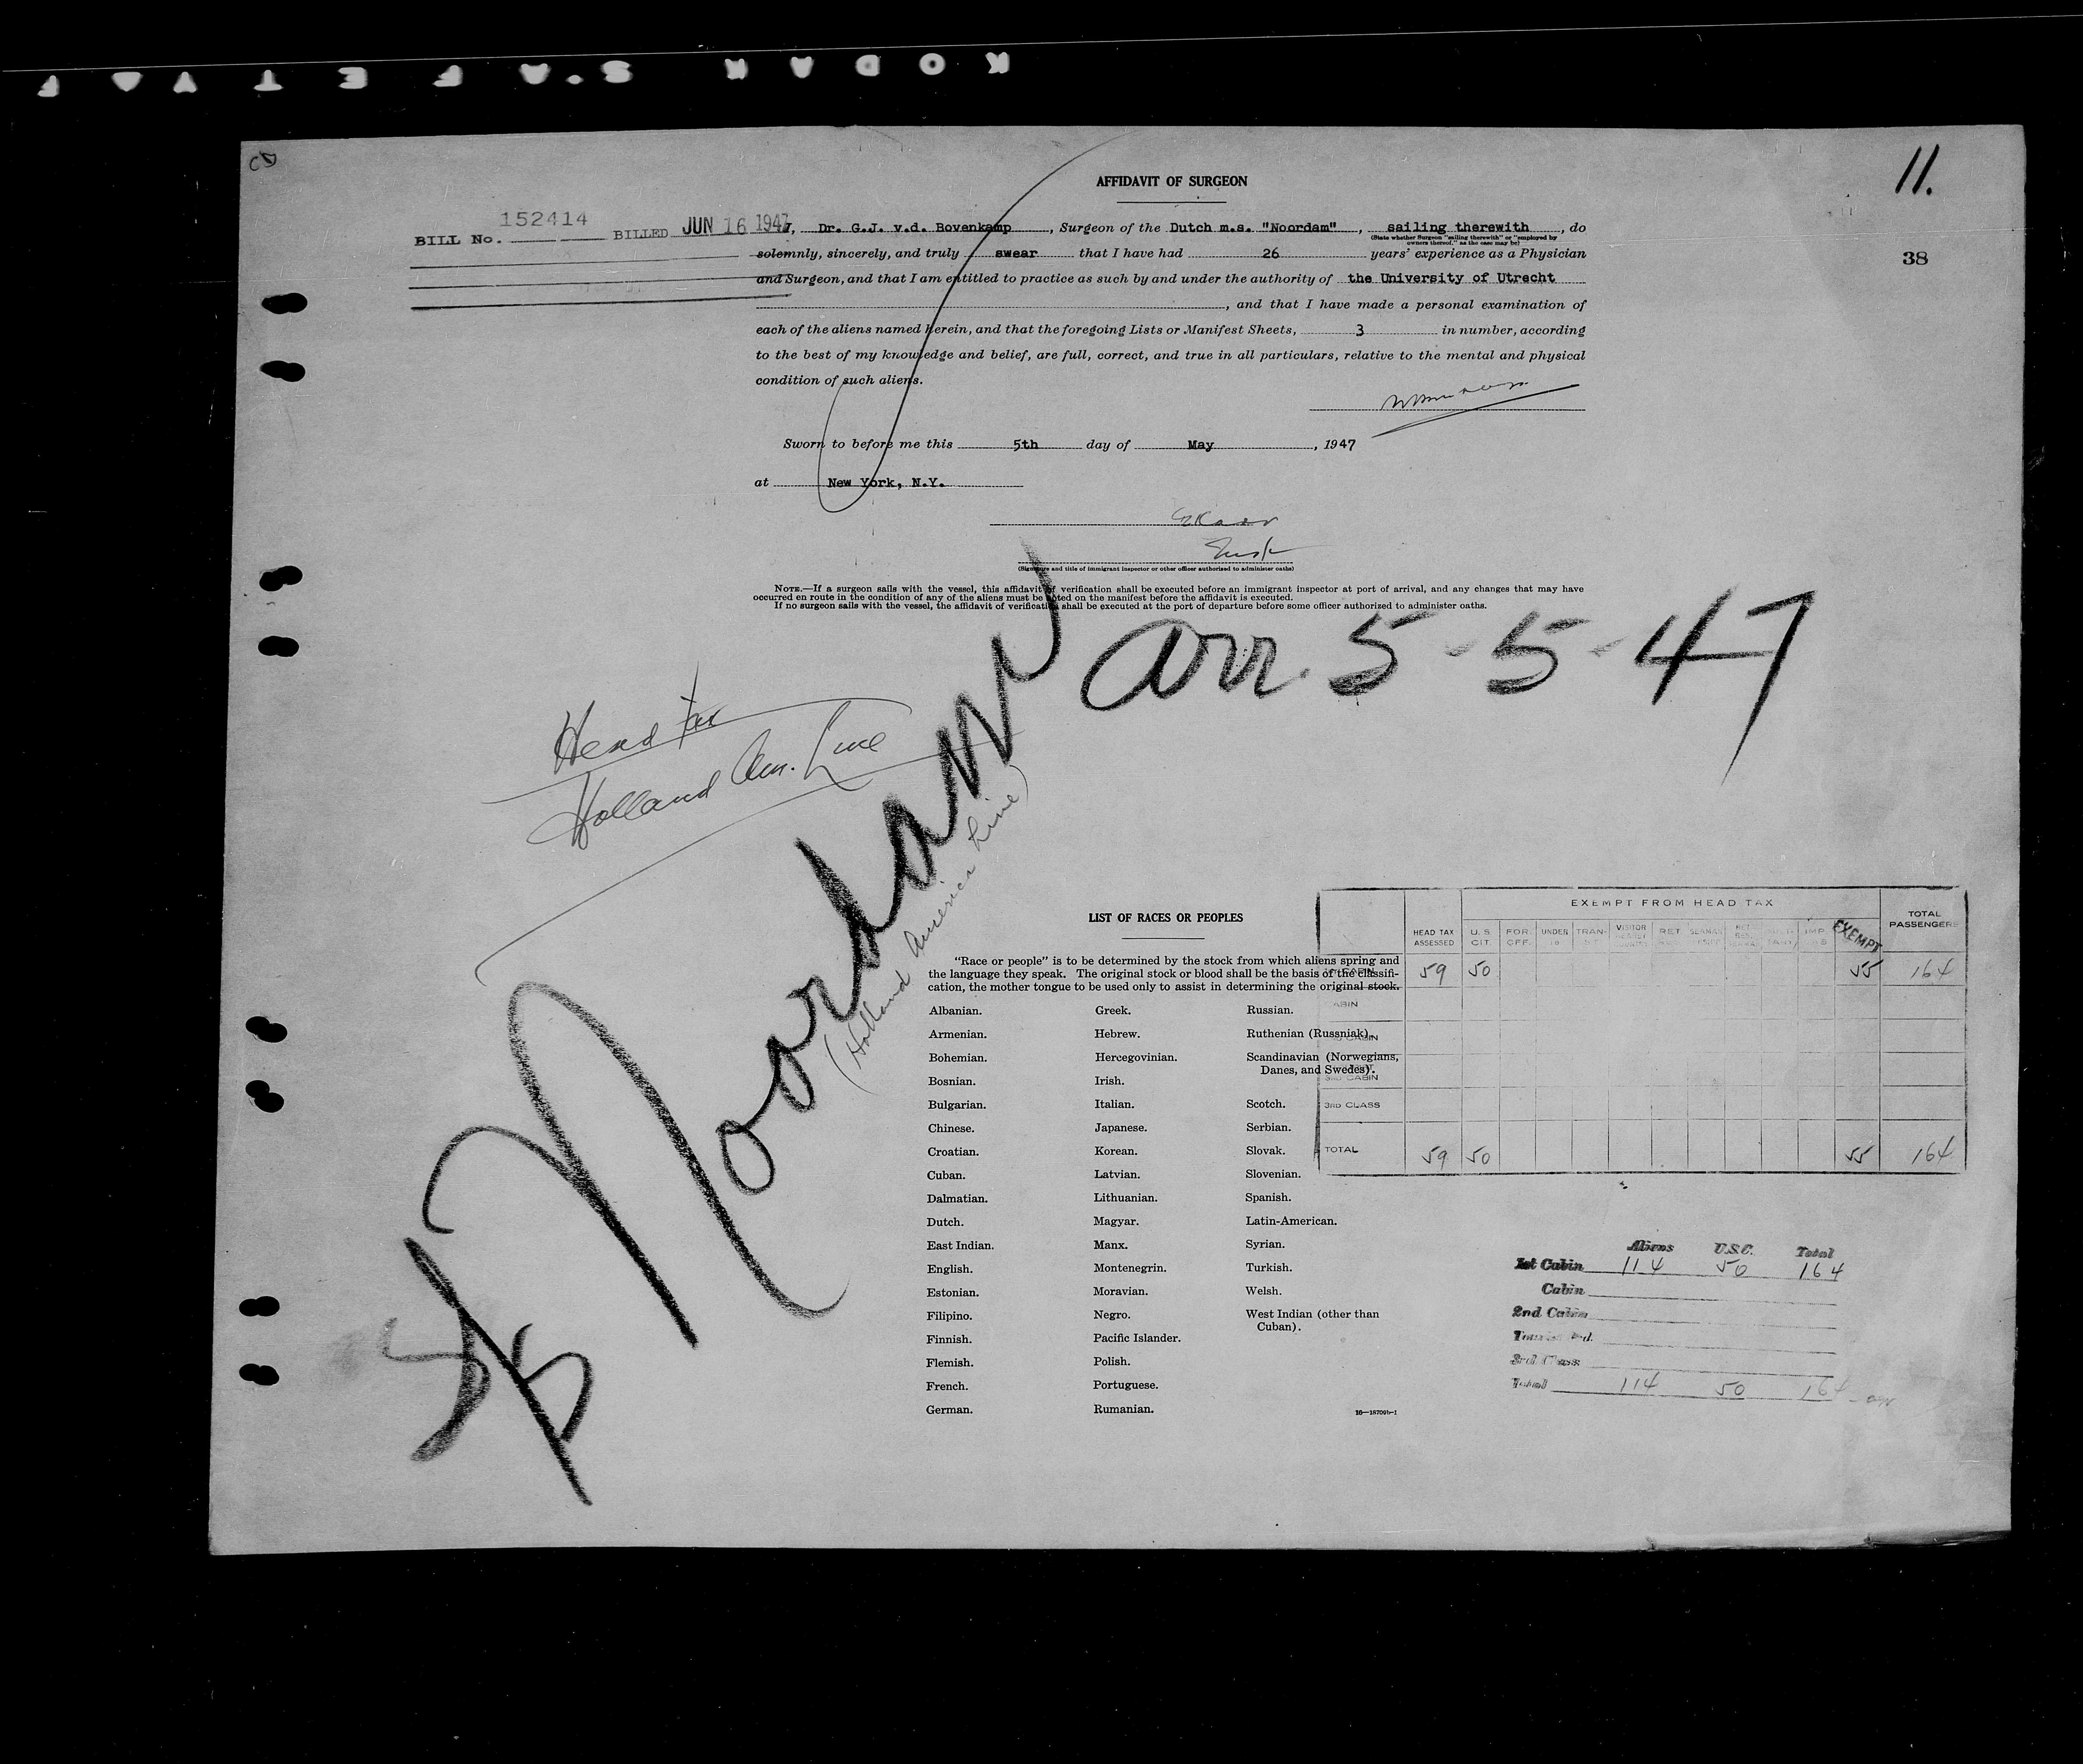 KODAK SAFETY
11.
38
AFFIDAVIT OF SURGEON
BILL No. 152414 BILLED JUN 16 1947
I, Dr. G.J. v.d. Bovenkamp, Surgeon of the Dutch m.s. "Noordam", sailing therewith, do
(State whether Surgeon "sailing therewith" or "employed by
owners thereof," as the case may be)
solemnly, sincerely, and truly swear that I have had 26 years' experience as a Physician
and Surgeon, and that I am entitled to practice as such by and under the authority of the University of Utrecht
, and that I have made a personal examination of
each of the aliens named herein, and that the foregoing Lists or Manifest Sheets, 3 in number, according
to the best of my knowledge and belief, are full, correct, and true in all particulars, relative to the mental and physical
condition of such aliens.
Sworn to before me this 5th day of May, 1947
at New York, N.Y.
(Signature and title of immigrant inspector or other officer authorized to administer oaths)
NOTE.—If a surgeon sails with the vessel, this affidavit of verification shall be executed before an immigrant inspector at port of arrival, and any changes that may have
occurred en route in the condition of any of the aliens must be noted on the manifest before the affidavit is executed.
If no surgeon sails with the vessel, the affidavit of verification shall be executed at the port of departure before some officer authorized to administer oaths.
arr. 5-5-47
Head tax
Holland Am. Line
Noordam
(Holland America Line)
LIST OF RACES OR PEOPLES
"Race or people" is to be determined by the stock from which aliens spring and
the language they speak. The original stock or blood shall be the basis of the classifi-
cation, the mother tongue to be used only to assist in determining the original stock.
Albanian.
Armenian.
Bohemian.
Bosnian.
Bulgarian.
Chinese.
Croatian.
Cuban.
Dalmatian.
Dutch.
East Indian.
English.
Estonian.
Filipino.
Finnish.
Flemish.
French.
German.
Greek.
Hebrew.
Hercegovinian.
Irish.
Italian.
Japanese.
Korean.
Latvian.
Lithuanian.
Magyar.
Manx.
Montenegrin.
Moravian.
Negro.
Pacific Islander.
Polish.
Portuguese.
Rumanian.
Russian.
Ruthenian (Russniak).
Scandinavian (Norwegians,
Danes, and Swedes).
Scotch.
Serbian.
Slovak.
Slovenian.
Spanish.
Latin-American.
Syrian.
Turkish.
Welsh.
West Indian (other than
Cuban).
16—18709b-1
EXEMPT FROM HEAD TAX
HEAD TAX ASSESSED
U.S. CIT.
FOR. OFF.
UNDER 16
TRAN-
VISITOR
RET
IMP
EXEMPT
TOTAL PASSENGERS
59 50 55 164
CABIN
3RD CABIN
3RD CLASS
TOTAL 59 50 55 164
Aliens U.S.C. Total
1st Cabin 114 50 164
Cabin
2nd Cabin
3rd Class
Total 114 50 164